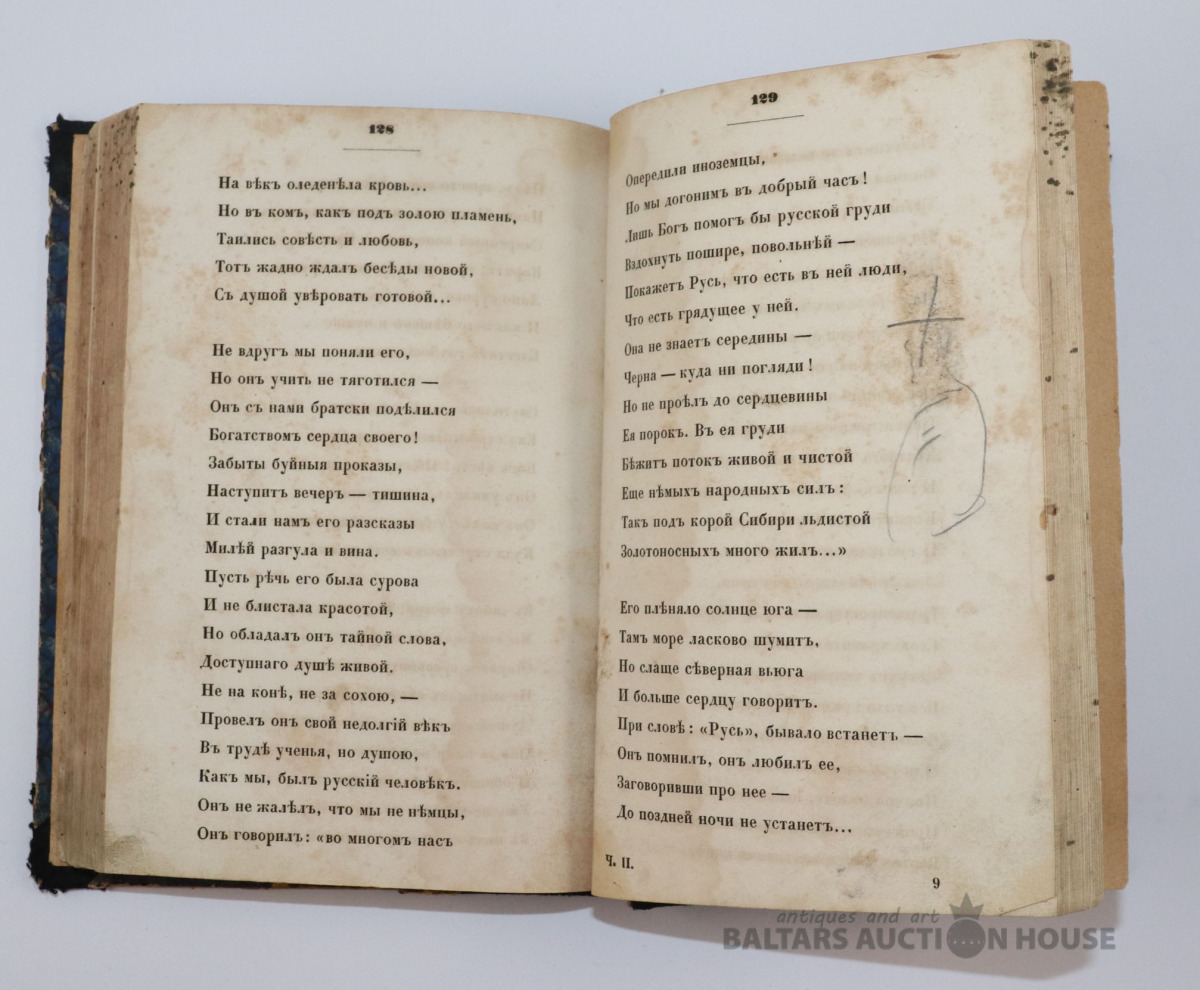 128
На вѣкъ оледенѣла кровь...
Но въ комъ, какъ подъ золою пламень,
Таились совѣсть и любовь,
Тотъ жадно ждалъ бесѣды новой,
Съ душой увѣровать готовой...
Не вдругъ мы поняли его,
Но онъ учить не тяготился —
Онъ съ нами братски подѣлился
Богатствомъ сердца своего!
Забыты буйныя проказы,
Наступитъ вечеръ — тишина,
И стали намъ его разсказы
Милѣй разгула и вина.
Пусть рѣчь его была сурова
И не блистала красотой,
Но обладалъ онъ тайной слова,
Доступнаго душѣ живой.
Не на конѣ, не за сохою, —
Провелъ онъ свой недолгій вѣкъ
Въ трудѣ ученья, но душою,
Какъ мы, былъ русскій человѣкъ.
Онъ не жалѣлъ, что мы не нѣмцы,
Онъ говорилъ: «во многомъ насъ
129
Опередили иноземцы,
Но мы догонимъ въ добрый часъ!
Лишь Богъ помогъ бы русской груди
Вздохнуть пошире, повольнѣй —
Покажетъ Русь, что есть въ ней люди,
Что есть грядущее у ней.
Она не знаетъ середины —
Черна — куда ни погляди!
Но не проѣлъ до сердцевины
Ея порокъ. Въ ея груди
Бѣжитъ потокъ живой и чистой
Еще нѣмыхъ народныхъ силъ:
Такъ подъ корой Сибири льдистой
Золотоносныхъ много жилъ...»
Его плѣняло солнце юга —
Тамъ море ласково шумитъ,
Но слаще сѣверная вьюга
И больше сердцу говоритъ.
При словѣ: «Русь», бывало встанетъ —
Онъ помнилъ, онъ любилъ ее,
Заговоривши про нее —
До поздней ночи не устанетъ...
Ч. II.
9
antiques and art
BALTARS AUCTION HOUSE